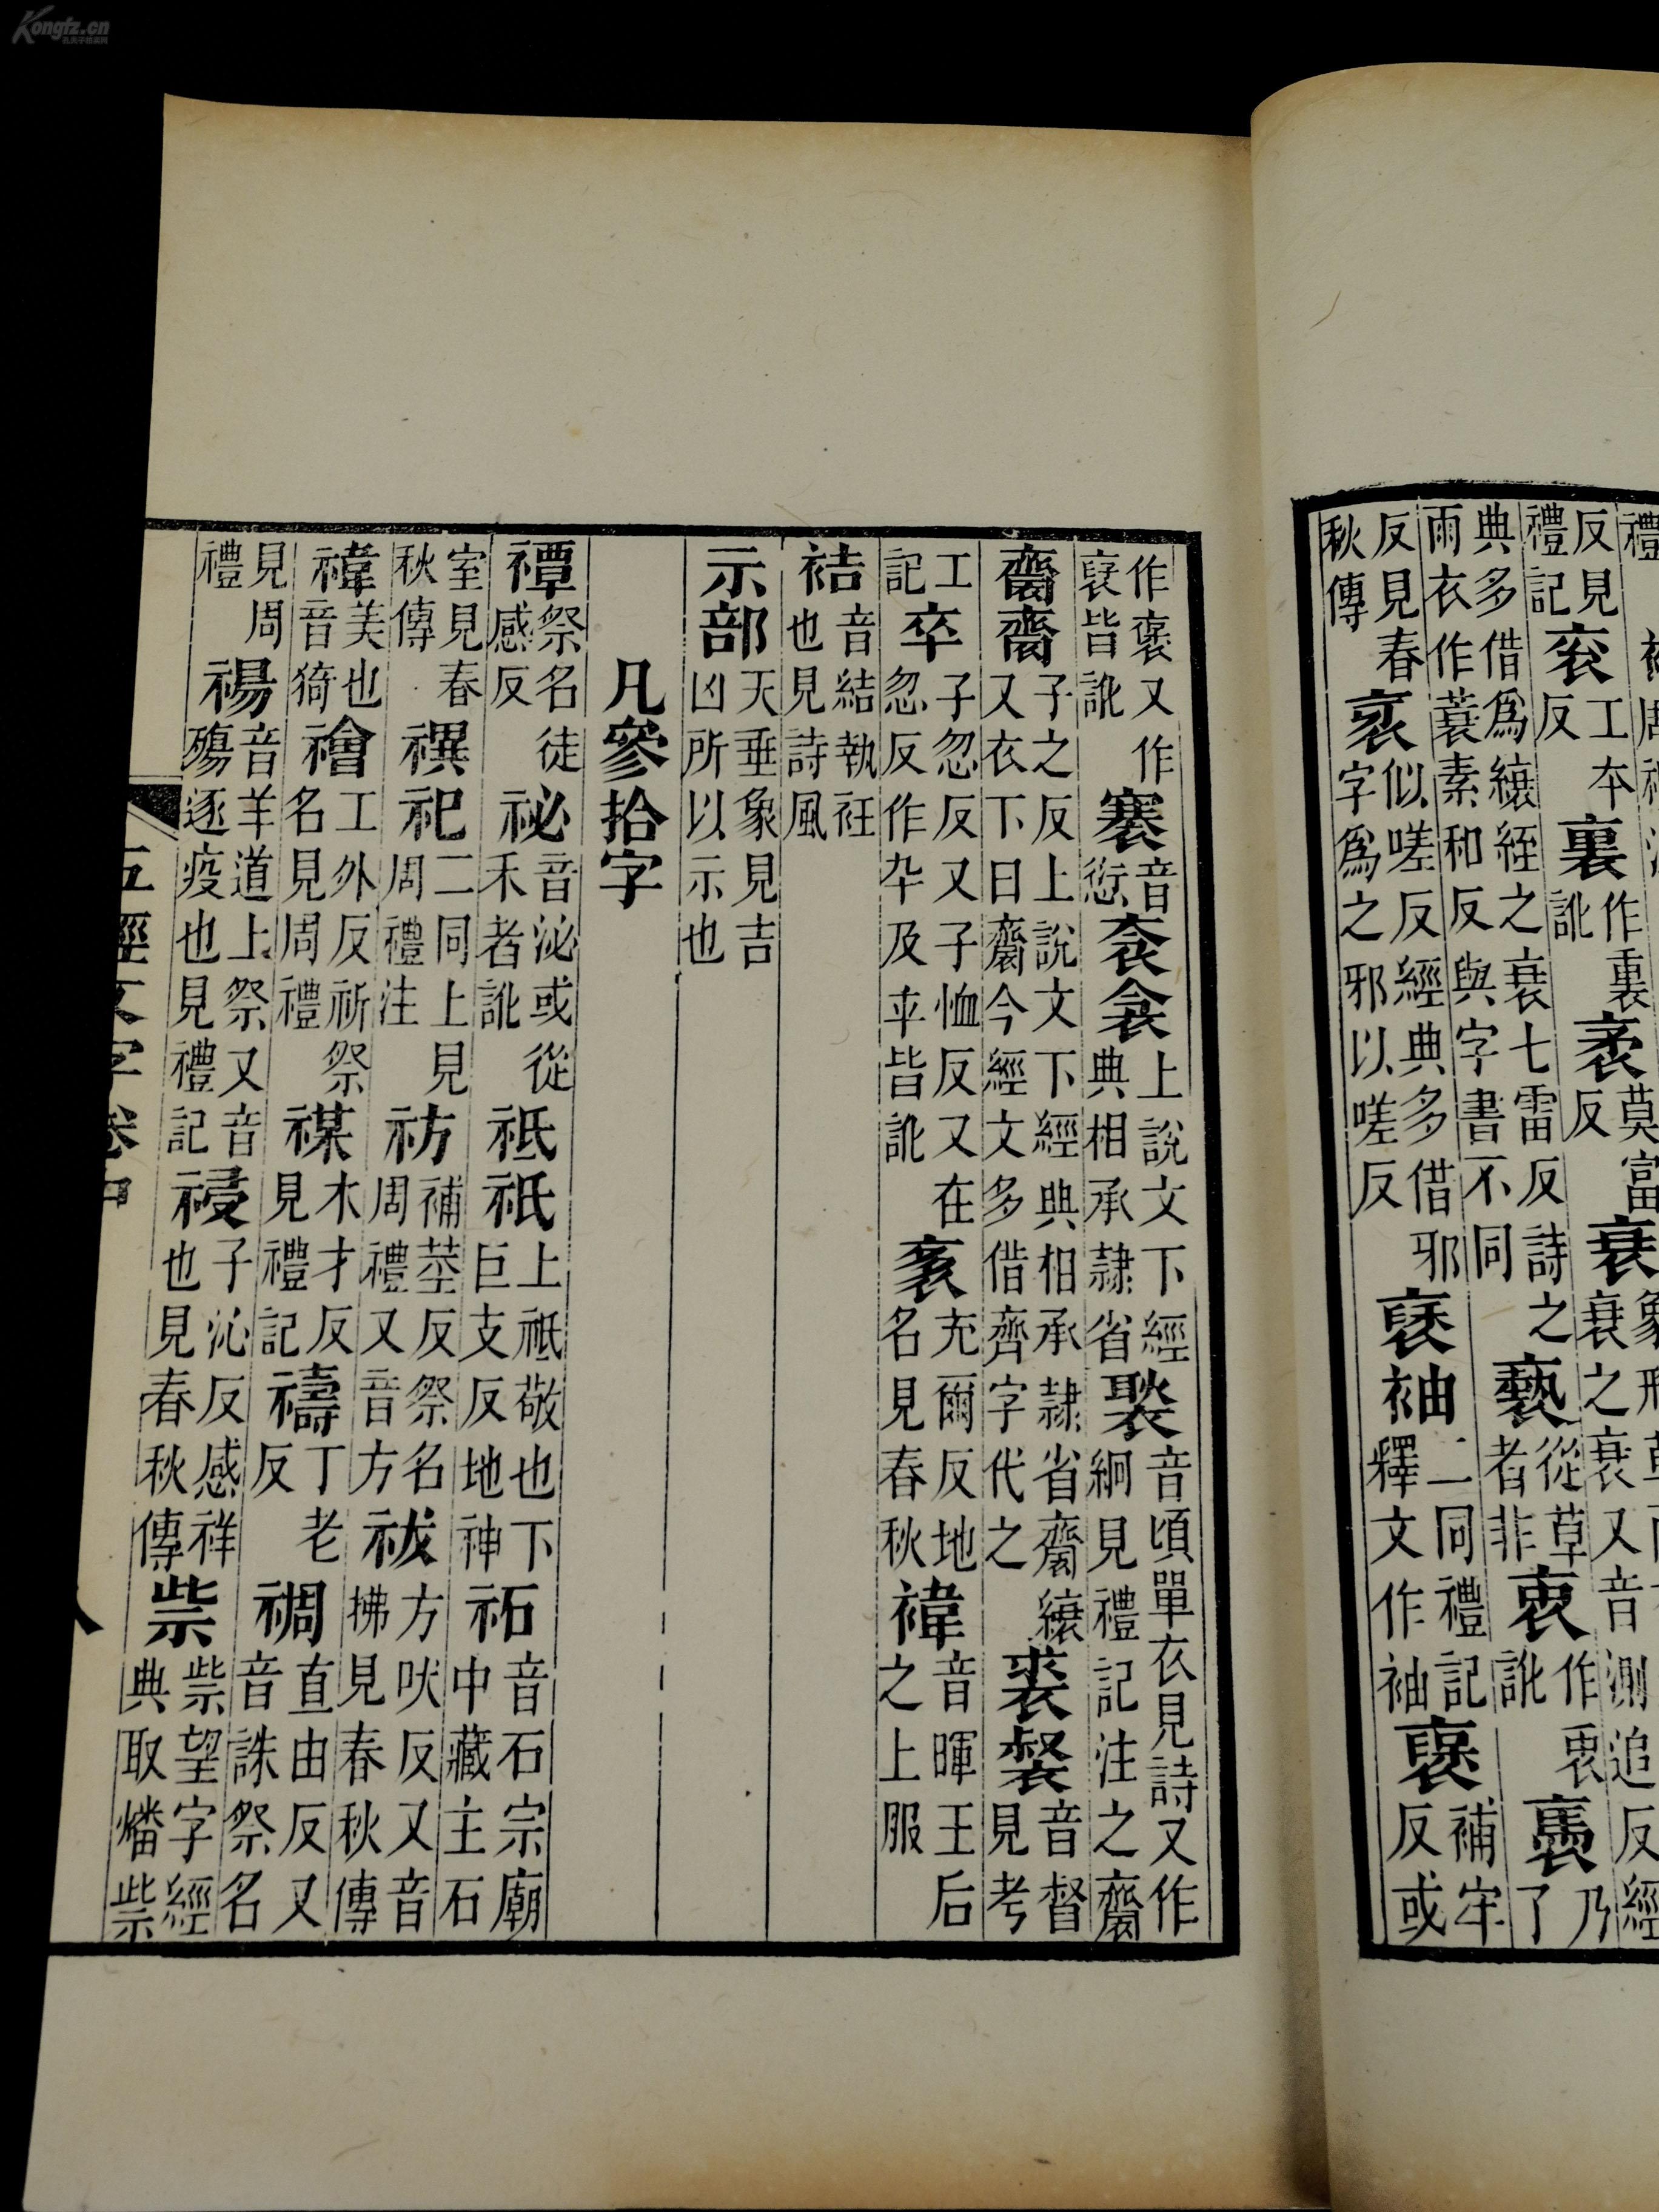 Kongfz.cn
禮
反見
禮記
衮
工本
反
裏
作裏
訛
典多借爲縗絰之衰七雷反詩之
雨衣作蓑素和反與字書不同
反見春
秋傳
衺
似嗟反經典多借邪
字爲之邪以嗟反
褎袖
二同禮記
釋文作袖
褒
補牢
反或
作襃又作
裦皆訛
褰
音
愆
衾
上說文下經
典相承隸省
褧
音頃單衣見詩又作
絅見禮記注之
齋
子之反上說文下經典相承隸省齋縗
又衣下曰齋今經文多借齊字代之
裻
音督
見考
工
記
卒
子忽反又子恤反又在
忽反作卆及𠦂皆訛
袲
充爾反地
名見春秋
褘
音暉王后
之上服
袺
音結執衽
也見詩風
示部
天垂象見吉
凶所以示也
凡參拾字
禫
祭名徒
感反
祕
音泌或從
禾者訛
祗祇
上祗敬也下
巨支反地神
祏
音石宗廟
中藏主石
室見春
秋傳
禩祀
二同上見
周禮注
祊
補莖反祭名
周禮又音方
祓
方吠反又音
拂見春秋傳
禕
美也
音猗
禬
工外反祈祭
名見周禮
禖
木才反
見禮記
禱
丁老
反
禂
直由反又
音誅祭名
見周
禮
禓
音羊道上祭又音
殤逐疫也見禮記
祲
子沁反感祥
也見春秋傳
祡
祡望字經
典取燔柴
五經文字卷中